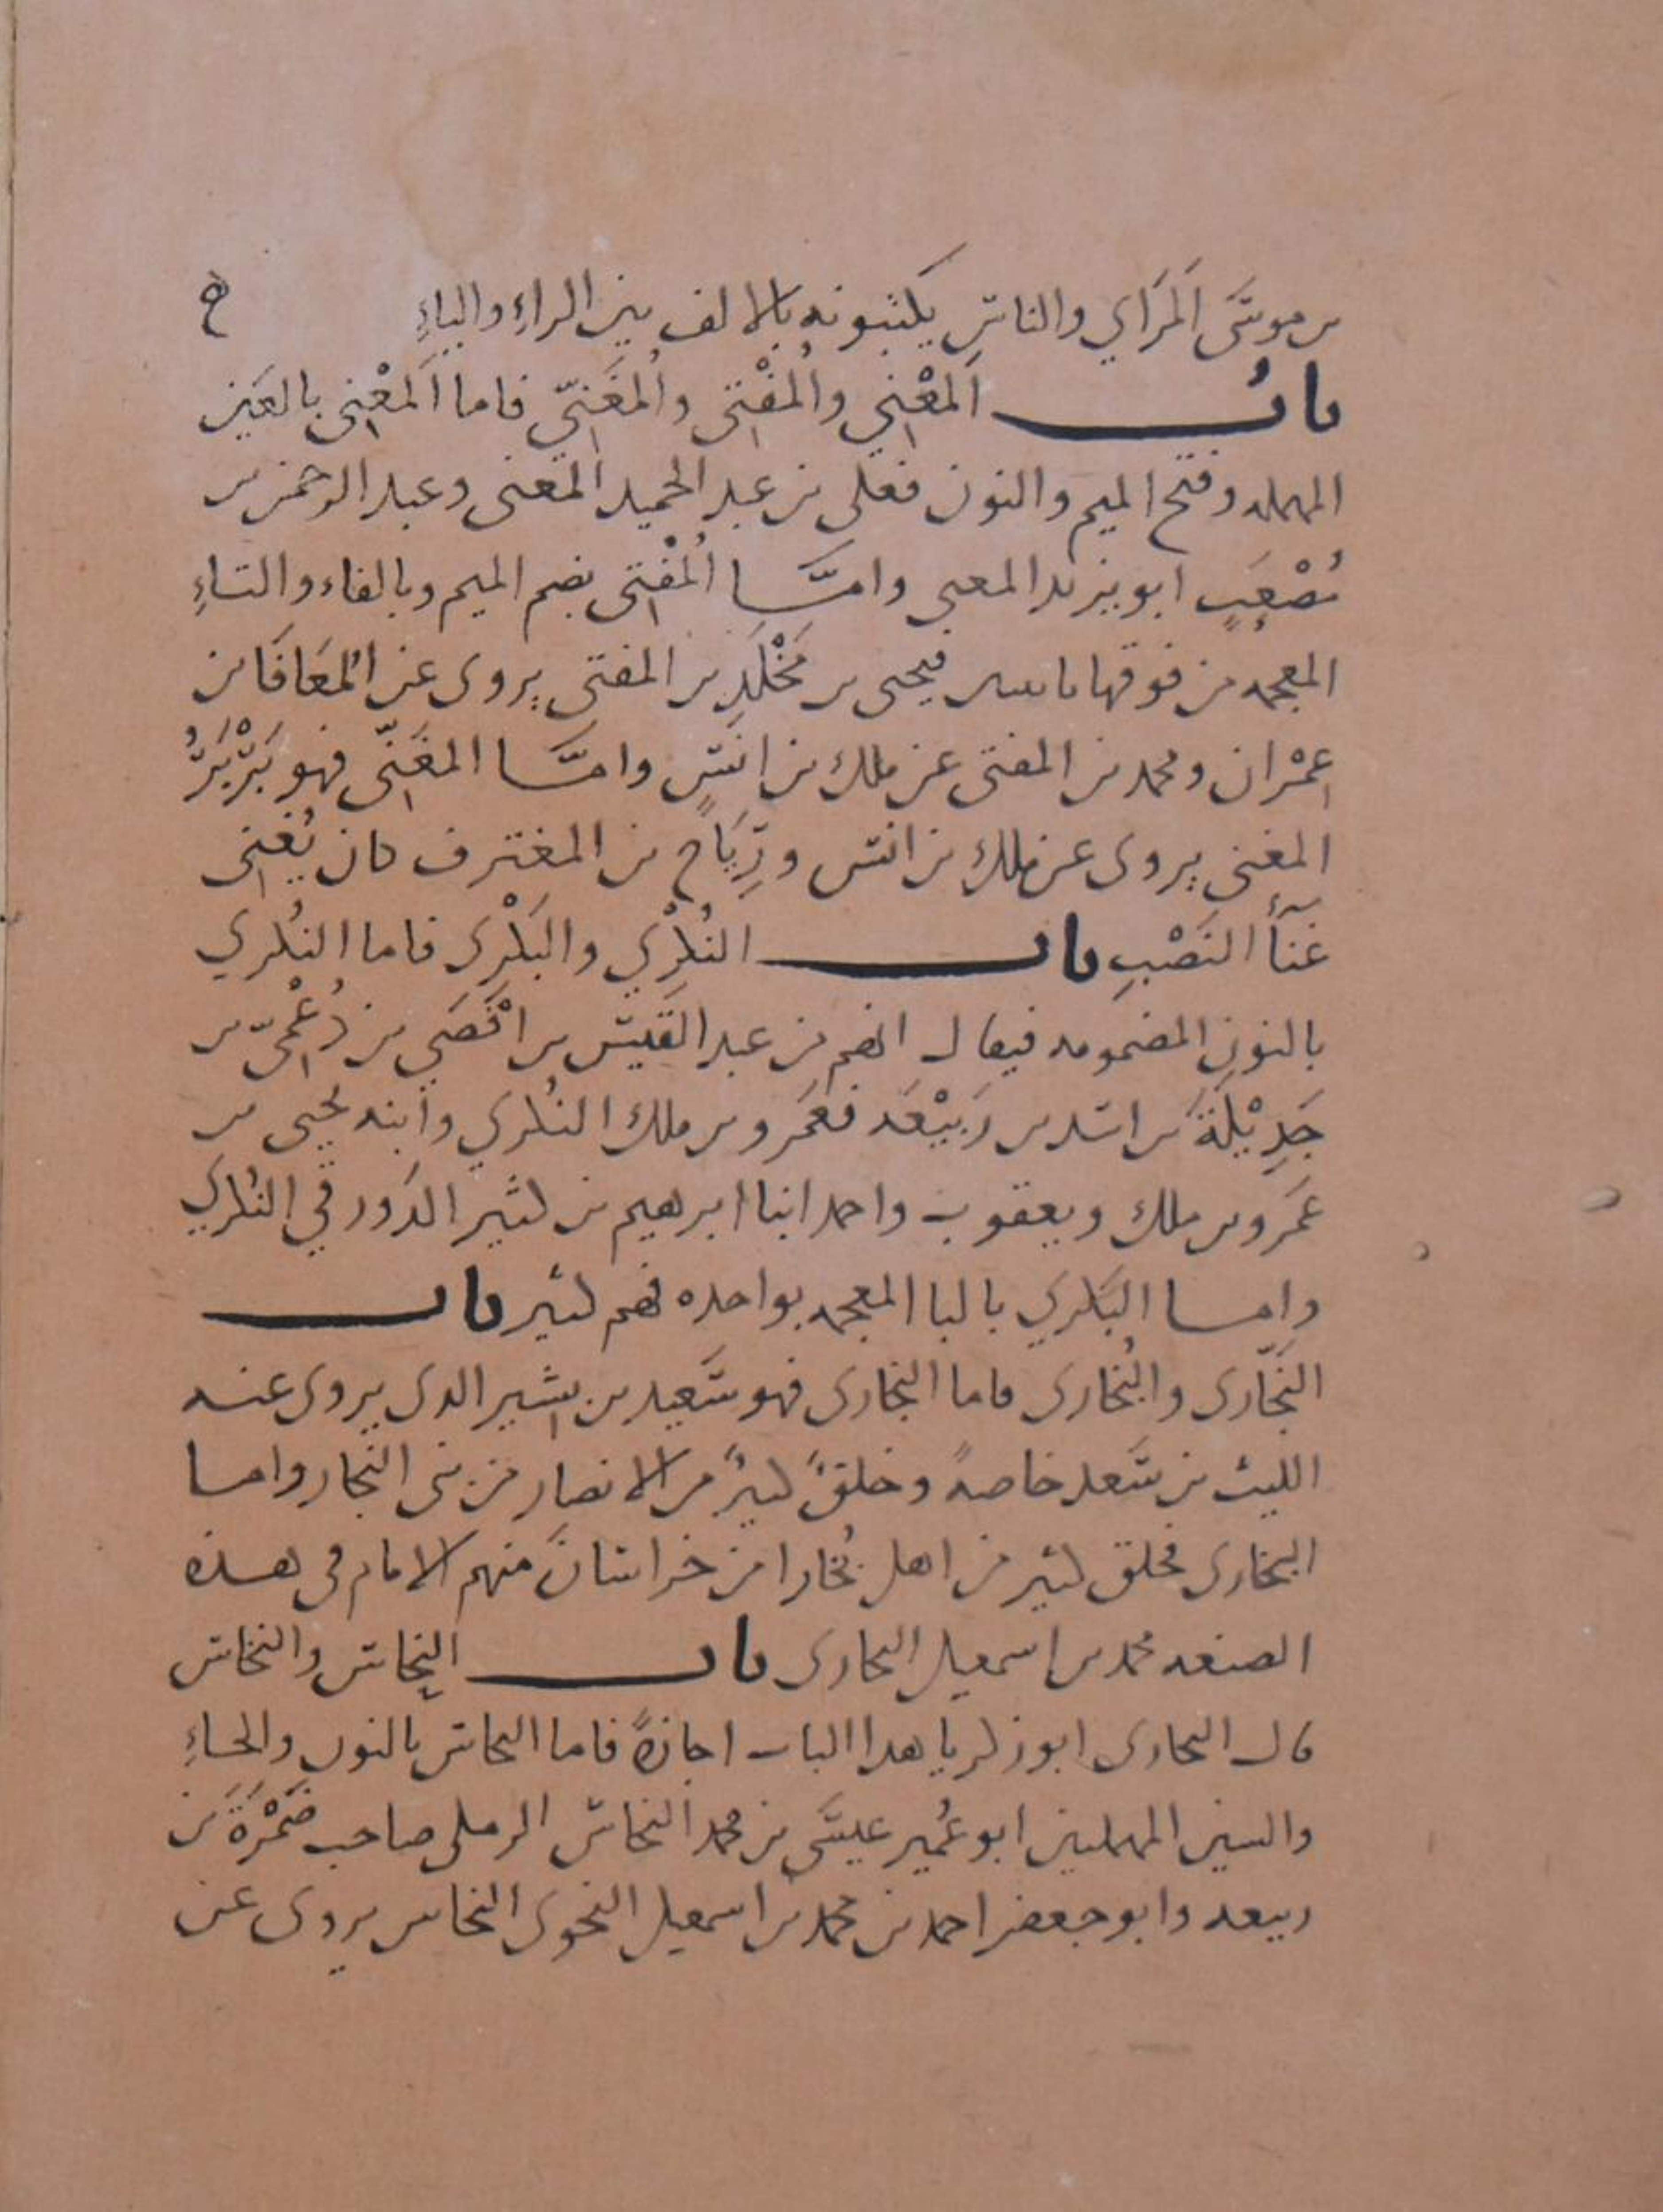 بن موسَى اَلمَرَاي والناس يكتبونه بالالف بين الراءِ والياءِ ه
بابُ اَلمعْنِي واُلمُفْتِى واُلمُغَنِّي فاما اَلمَعْنِى بالعَين
المهمله وفتح الميم والنون فعلى بن عبد الحميد المَعنى وعبد الرحمن بن
مُصْعَبٍ ابو يزيد المعنى وامَّا اُلمُفْتِى بضم الميم وبالفاء والتاءِ
المعجمه من فوقها باثنتين فيحيى بن مَخْلَدِ بن المفتى يروى عن اُلمعَافَا بن
عِمْران ومحمد بن المفتى عن ملك بن انَسٍ وامَّا المغَنِّى فهو بَرْبَرُ
المغنى يروى عن ملك بن انس ورِيَاح بن المغترف كان يُغَنِى
غنَآأَ النَصْبِ باب النُكْرِي والبَكْرِى فاما النُكري
بالنونِ المضمومه فيقال انهم من عبد القَيس بن اَفْصَي بن دُعْمِىّ بن
جَدِيْلَةَ بن اسَد بن رَبيْعَه فعَمَرو بن ملك النُكري وابنه يحيى بن
عَمَرو بن ملك ويعقوب واحمد ابنا ابرهيم بن كثير الدَورقي النُكري
وامــا البَكري بالبا المعجمه بواحده فهم كثير باب
النجَّارى والبُخارى فاما النجارى فهو سَعيد بن بشير الدى يروى عنه
الليث بن سَعد خاصهً وخلقٌ كثيرٌ من الانصار من بنى النجار وامــا
البخارى فخلق كثير من اهل بُخارا من خراسانَ منهم الامام فى هــذه
الصنعه محمد بن اسمعيل البخارى باب النحاس والنخاس
قال البخارى ابو زكريا هدا الباب اجازةً فاما النحاس بالنون والحــاءِ
والسين المهملتين ابو عُمير عيسَى بن محمد النحاس الرملى صاحب ضَمْرَةَ بن
ربيعه وابو جعفر احمد بن محمد بن اسمعيل النحوى النحاس يروى عن